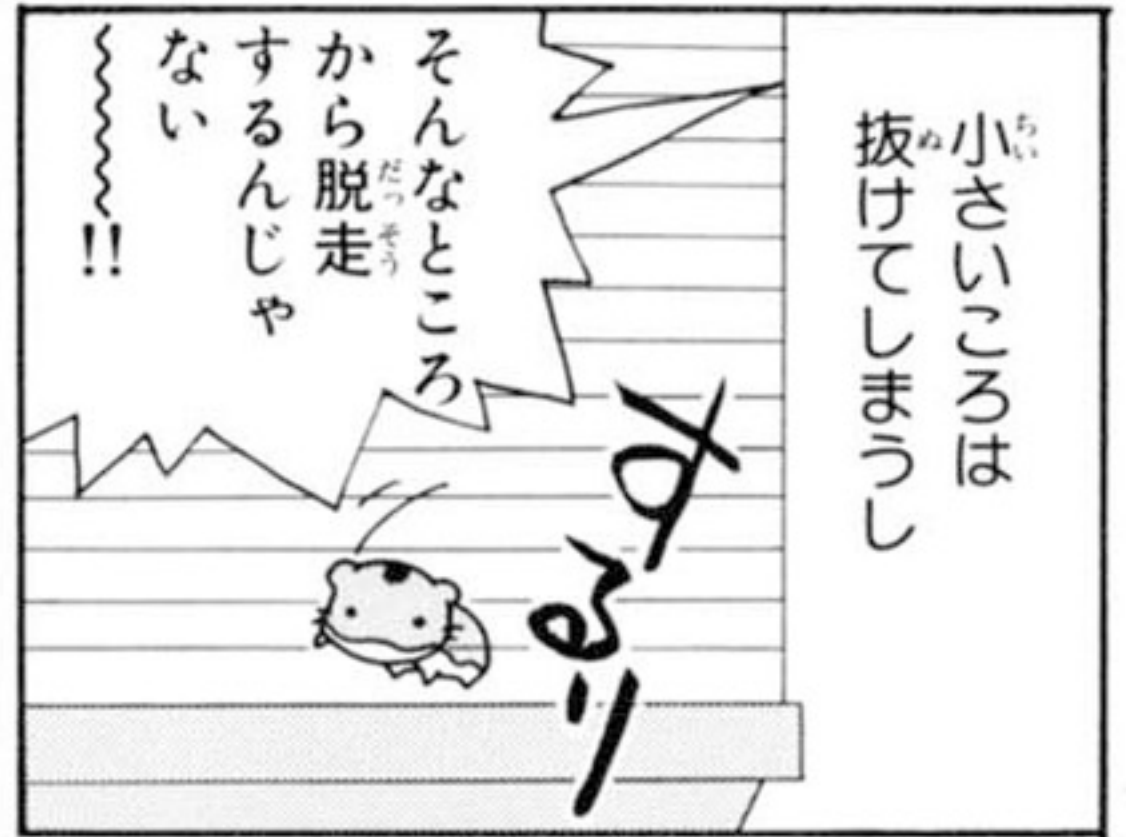 小さいころは
抜けてしまうし
そんなところ
から脱走
するんじゃ
ない
〜〜〜!!